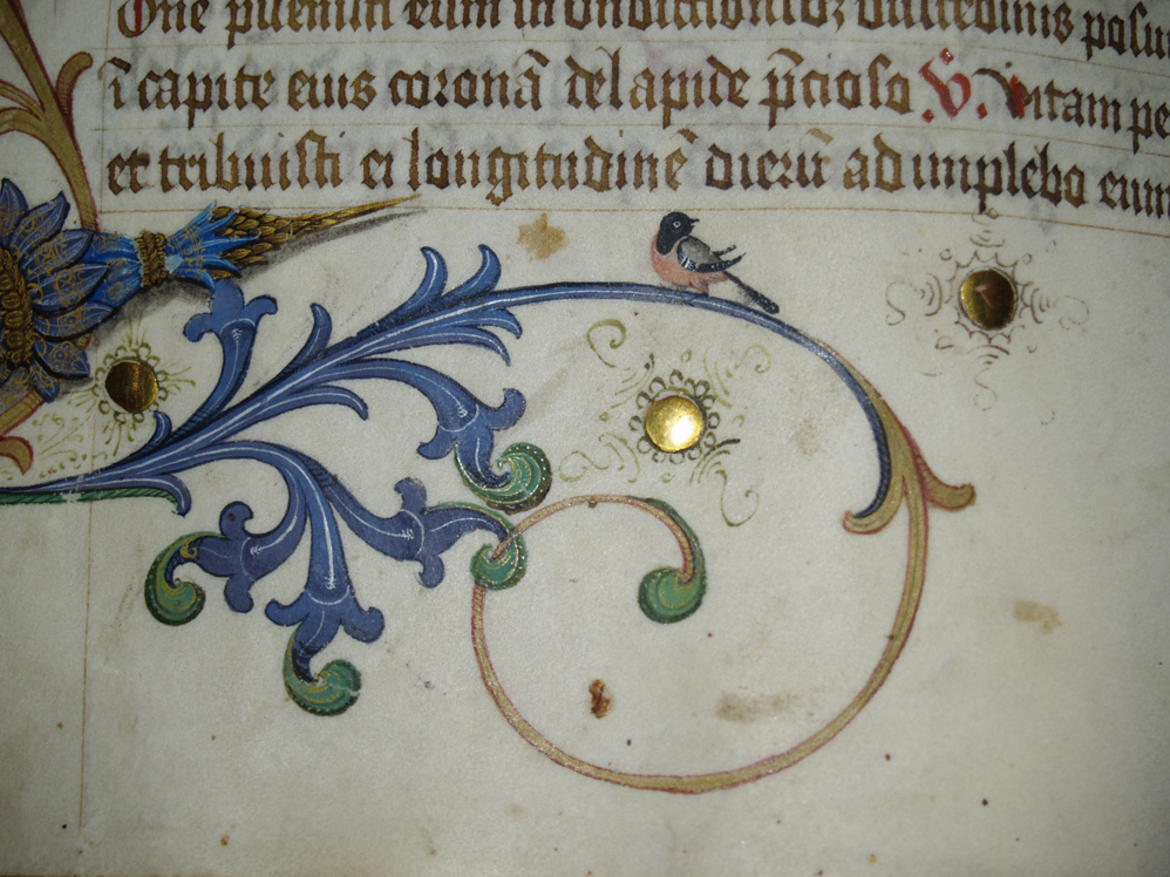 Dne pueniſti eum in bndictionibz dulcedinis poſui
ī capite eius coronā de lapide p̄cioſo V. Vitam pe
et tribuiſti ei longitudinē dierū ad implebo eum